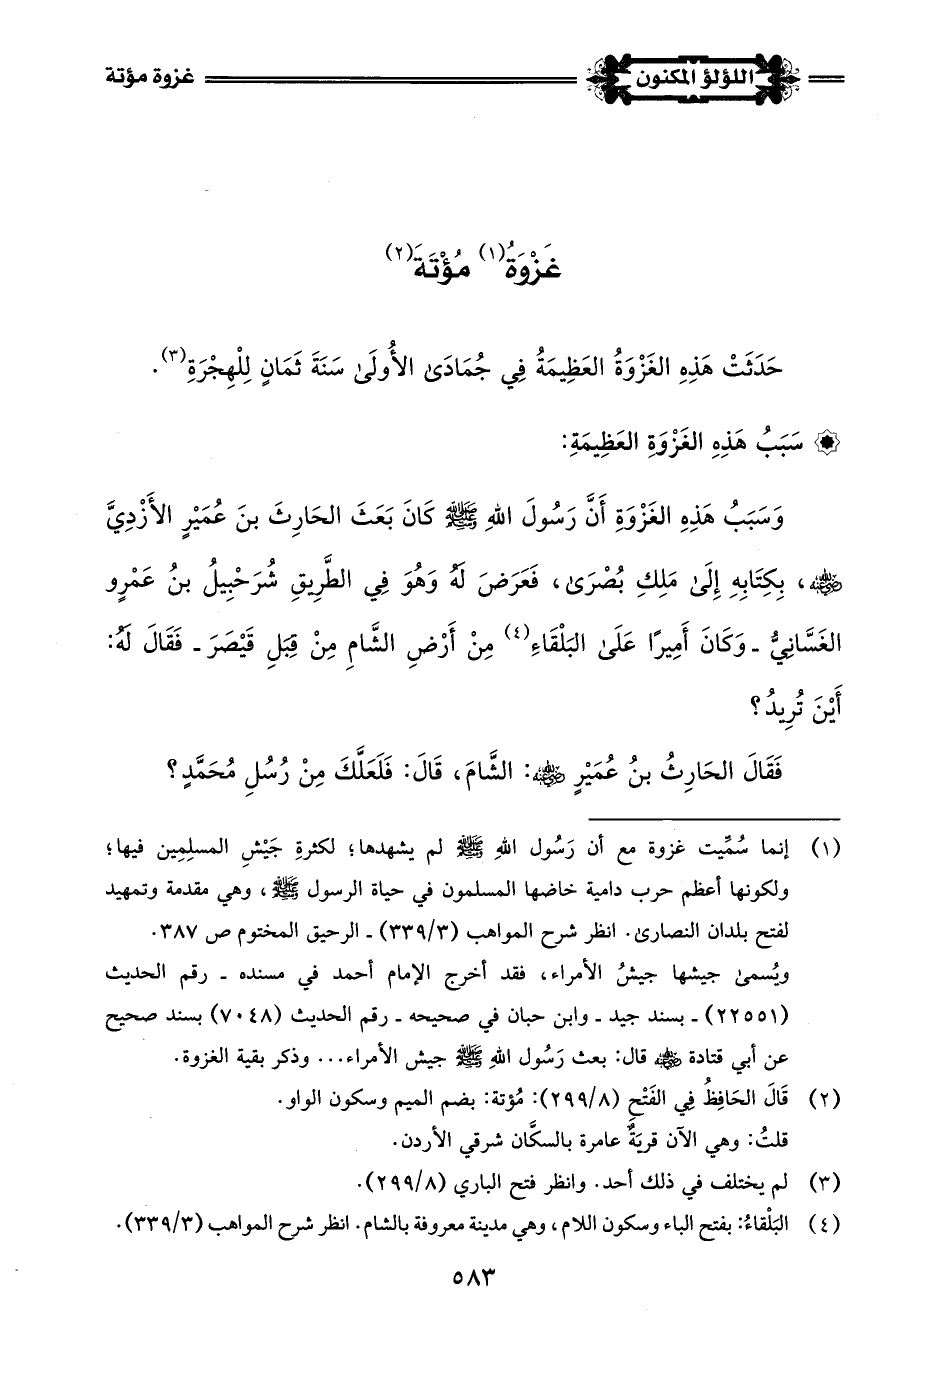 اللؤلؤ المكنون غزوة مؤتة
غَزْوَةُ(١) مُؤْتَةَ(٢)
حَدَثَتْ هَذِهِ الغَزْوَةُ العَظِيمَةُ فِي جُمَادَى الأُولَى سَنَةَ ثَمَانٍ لِلْهِجْرَةِ(٣).
۞ سَبَبُ هَذِهِ الغَزْوَةِ العَظِيمَةِ:
وَسَبَبُ هَذِهِ الغَزْوَةِ أَنَّ رَسُولَ اللهِ ﷺ كَانَ بَعَثَ الحَارِثَ بنَ عُمَيْرٍ الأَزْدِيَّ
رضي الله عنه، بِكِتَابِهِ إِلَى مَلِكِ بُصْرَى، فَعَرَضَ لَهُ وَهُوَ فِي الطَّرِيقِ شُرَحْبِيلُ بنُ عَمْرٍو
الغَسَّانِيُّ - وَكَانَ أَمِيرًا عَلَى البَلْقَاءِ(٤) مِنْ أَرْضِ الشَّامِ مِنْ قِبَلِ قَيْصَرَ - فَقَالَ لَهُ:
أَيْنَ تُرِيدُ؟
فَقَالَ الحَارِثُ بنُ عُمَيْرٍ رضي الله عنه: الشَّامَ، قَالَ: فَلَعَلَّكَ مِنْ رُسُلِ مُحَمَّدٍ؟
(١) إنما سُمِّيت غزوة مع أن رَسُول اللهِ ﷺ لم يشهدها؛ لكثرةِ جَيْشِ المسلمِين فيها؛
ولكونها أعظم حرب دامية خاضها المسلمون في حياة الرسول ﷺ، وهي مقدمة وتمهيد
لفتح بلدان النصارى. انظر شرح المواهب (٣/٣٣٩) - الرحيق المختوم ص ٣٨٧.
ويُسمى جيشها جيشُ الأمراء، فقد أخرج الإمام أحمد في مسنده - رقم الحديث
(٢٢٥٥١) - بسند جيد - وابن حبان في صحيحه - رقم الحديث (٧٠٤٨) بسند صحيح
عن أبي قتادة رضي الله عنه قال: بعث رَسُول اللهِ ﷺ جيش الأمراء... وذكر بقية الغزوة.
(٢) قَالَ الحَافِظُ فِي الفَتْحِ (٨/٢٩٩): مُؤتة: بضم الميم وسكون الواو.
قلتُ: وهي الآن قريَةٌ عامرة بالسكَّان شرقي الأردن.
(٣) لم يختلف في ذلك أحد. وانظر فتح الباري (٨/٢٩٩).
(٤) البَلْقاءُ: بفتح الباء وسكون اللام، وهي مدينة معروفة بالشام. انظر شرح المواهب (٣/٣٣٩).
٥٨٣